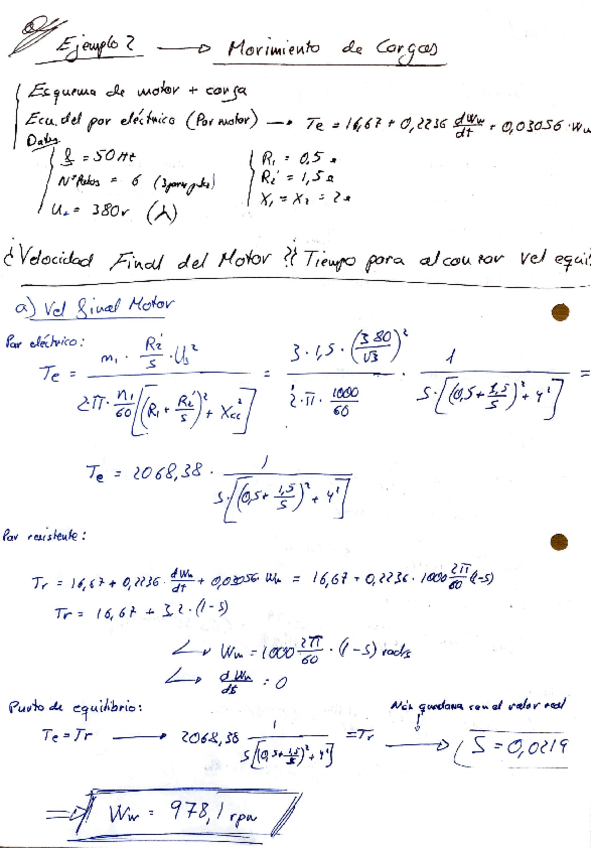 Ejemplo 2 → Movimiento de Cargas
Esquema de motor + carga
Ecu. del par eléctrico (Par motor) → Te = 16,67 + 0,2236 dWm/dt + 0,03056 · Wm
Datos
f = 50Hz
R1 = 0,5 Ω
Nº Polos = 6 (3 pares polos)
R2' = 1,5 Ω
UL = 380v (⅄)
X1 = X2 = 2 Ω
¿Velocidad Final del Motor? ¿Tiempo para alcanzar vel equi
a) Vel final Motor
Par eléctrico:
Te = (m1 · R2'/s · Us²) / (2·π · n1/60 [(R1 + R2'/s)² + Xcc²]) = (3 · 1,5 · (380/√3)²) / (2 · π · 1000/60) · 1 / (s · [(0,5 + 1,5/s)² + 4²]) =
Te = 2068,38 · 1 / (s · [(0,5 + 1,5/s)² + 4²])
Par resistente:
Tr = 16,67 + 0,2236 · dWm/dt + 0,03056 · Wm = 16,67 + 0,2236 · 1000 2π/60 (1-s)
Tr = 16,67 + 3,2 · (1-s)
↳ Wm = 1000 2π/60 · (1-s) rad/s
↳ dWm/dt = 0
Punto de equilibrio:
Nos quedamos con el valor real
Te = Tr → 2068,38 1 / (s[(0,5 + 1,5/s)² + 4²]) = Tr → S = 0,0219
⇒ Wm = 978,1 rpm